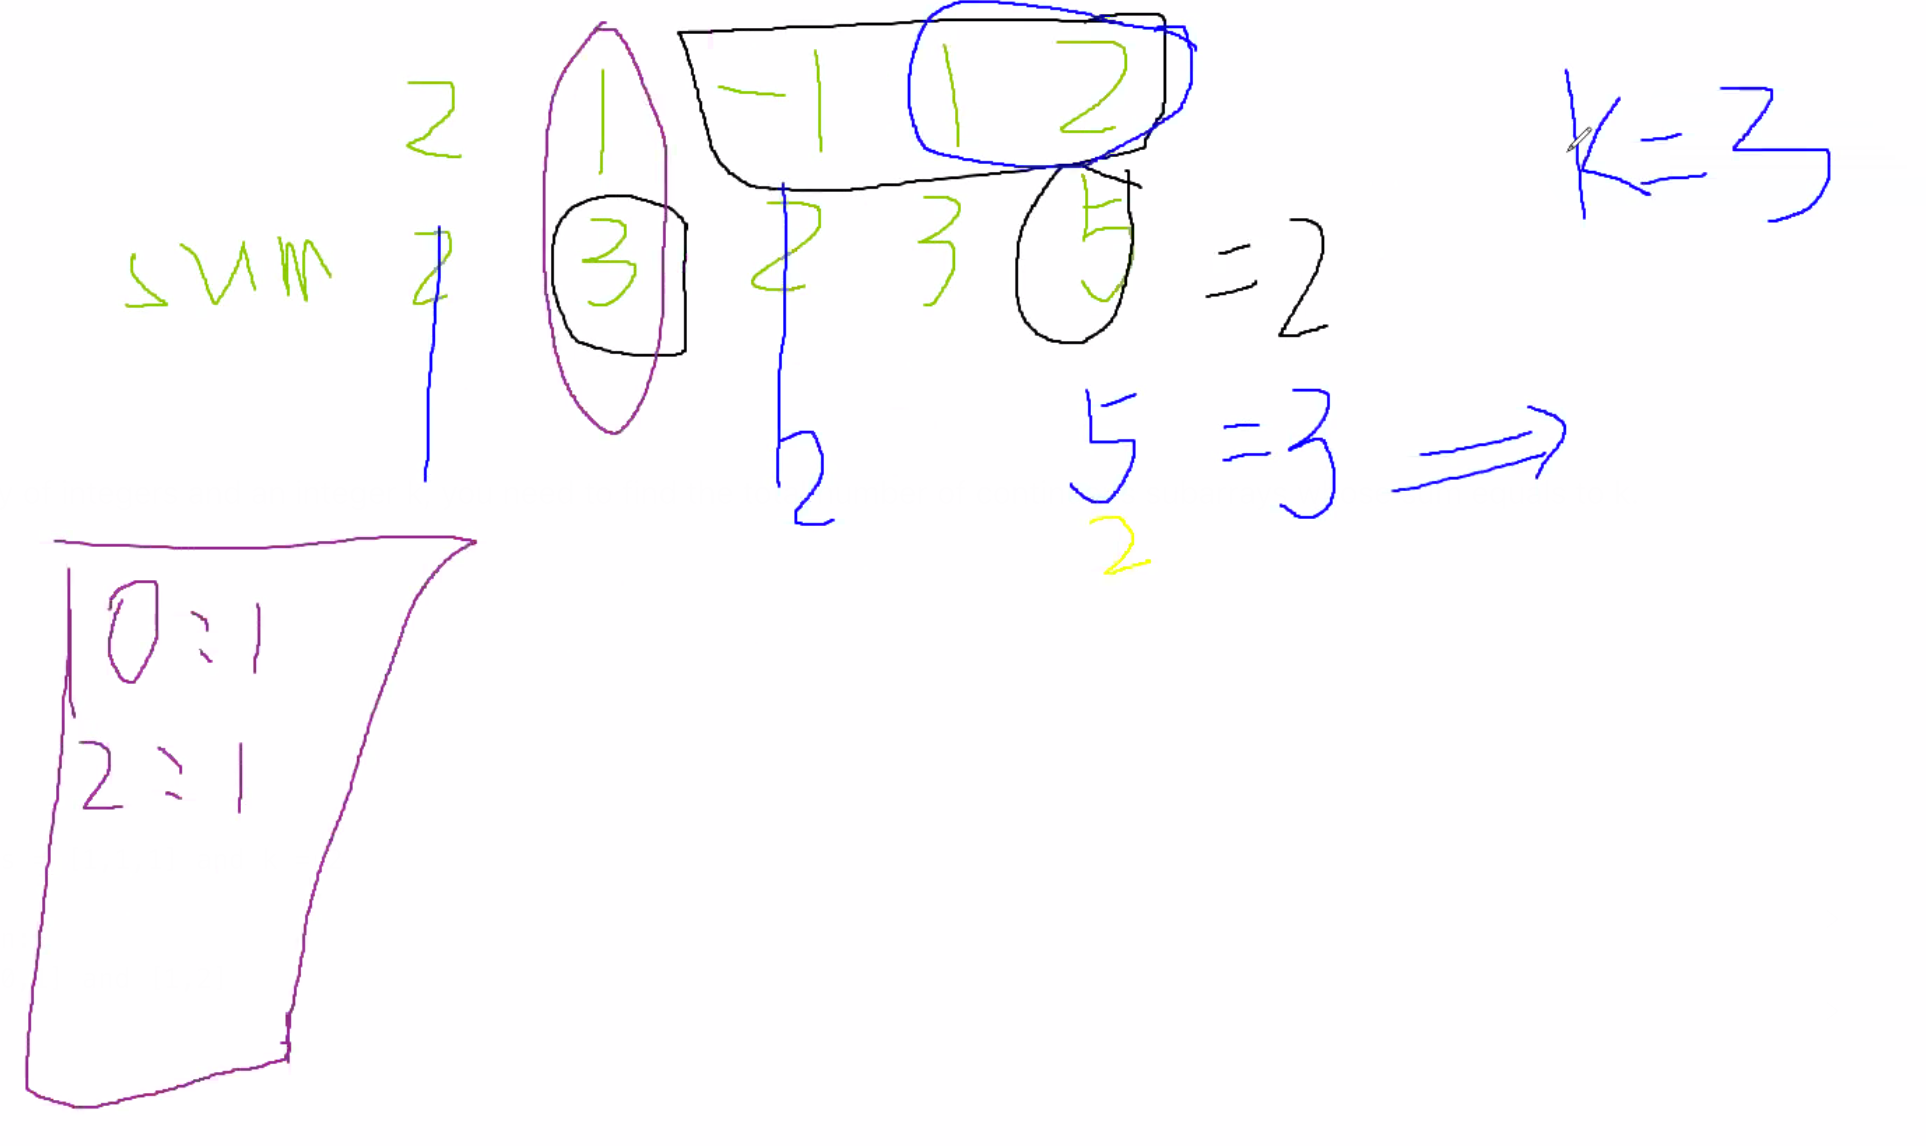 2 1 -1 1 2
K = 3
sum 2 3 2 3 5 = 2
2 5 = 3 ⇒
2
0 : 1
2 : 1